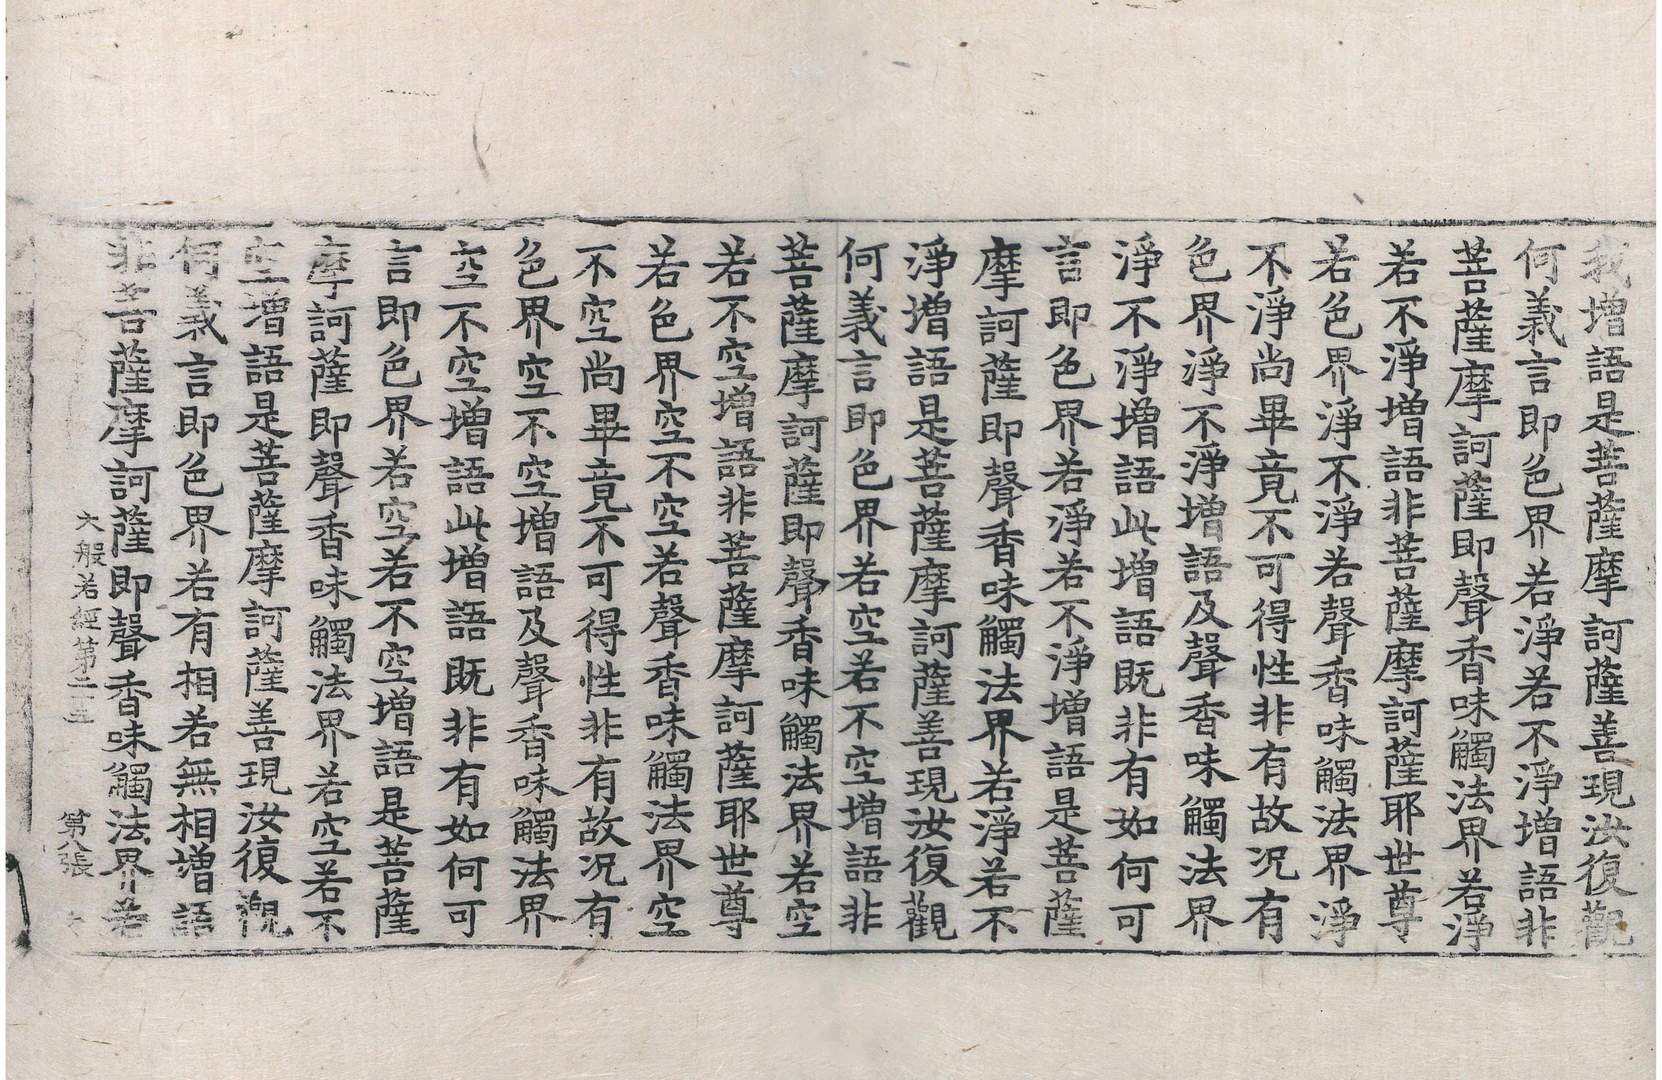 我增語是菩薩摩訶薩善現汝復觀
何義言即色界若淨若不淨增語非
菩薩摩訶薩即聲香味觸法界若淨
若不淨增語非菩薩摩訶薩耶世尊
若色界淨不淨若聲香味觸法界淨
不淨尚畢竟不可得性非有故况有
色界淨不淨增語及聲香味觸法界
淨不淨增語此增語既非有如何可
言即色界若淨若不淨增語是菩薩
摩訶薩即聲香味觸法界若淨若不
淨增語是菩薩摩訶薩善現汝復觀
何義言即色界若空若不空增語非
菩薩摩訶薩即聲香味觸法界若空
若不空增語非菩薩摩訶薩耶世尊
若色界空不空若聲香味觸法界空
不空尚畢竟不可得性非有故况有
色界空不空增語及聲香味觸法界
空不空增語此增語既非有如何可
言即色界若空若不空增語是菩薩
摩訶薩即聲香味觸法界若空若不
空增語是菩薩摩訶薩善現汝復觀
何義言即色界若有相若無相增語
非菩薩摩訶薩即聲香味觸法界若
大般若經第二五 第八張